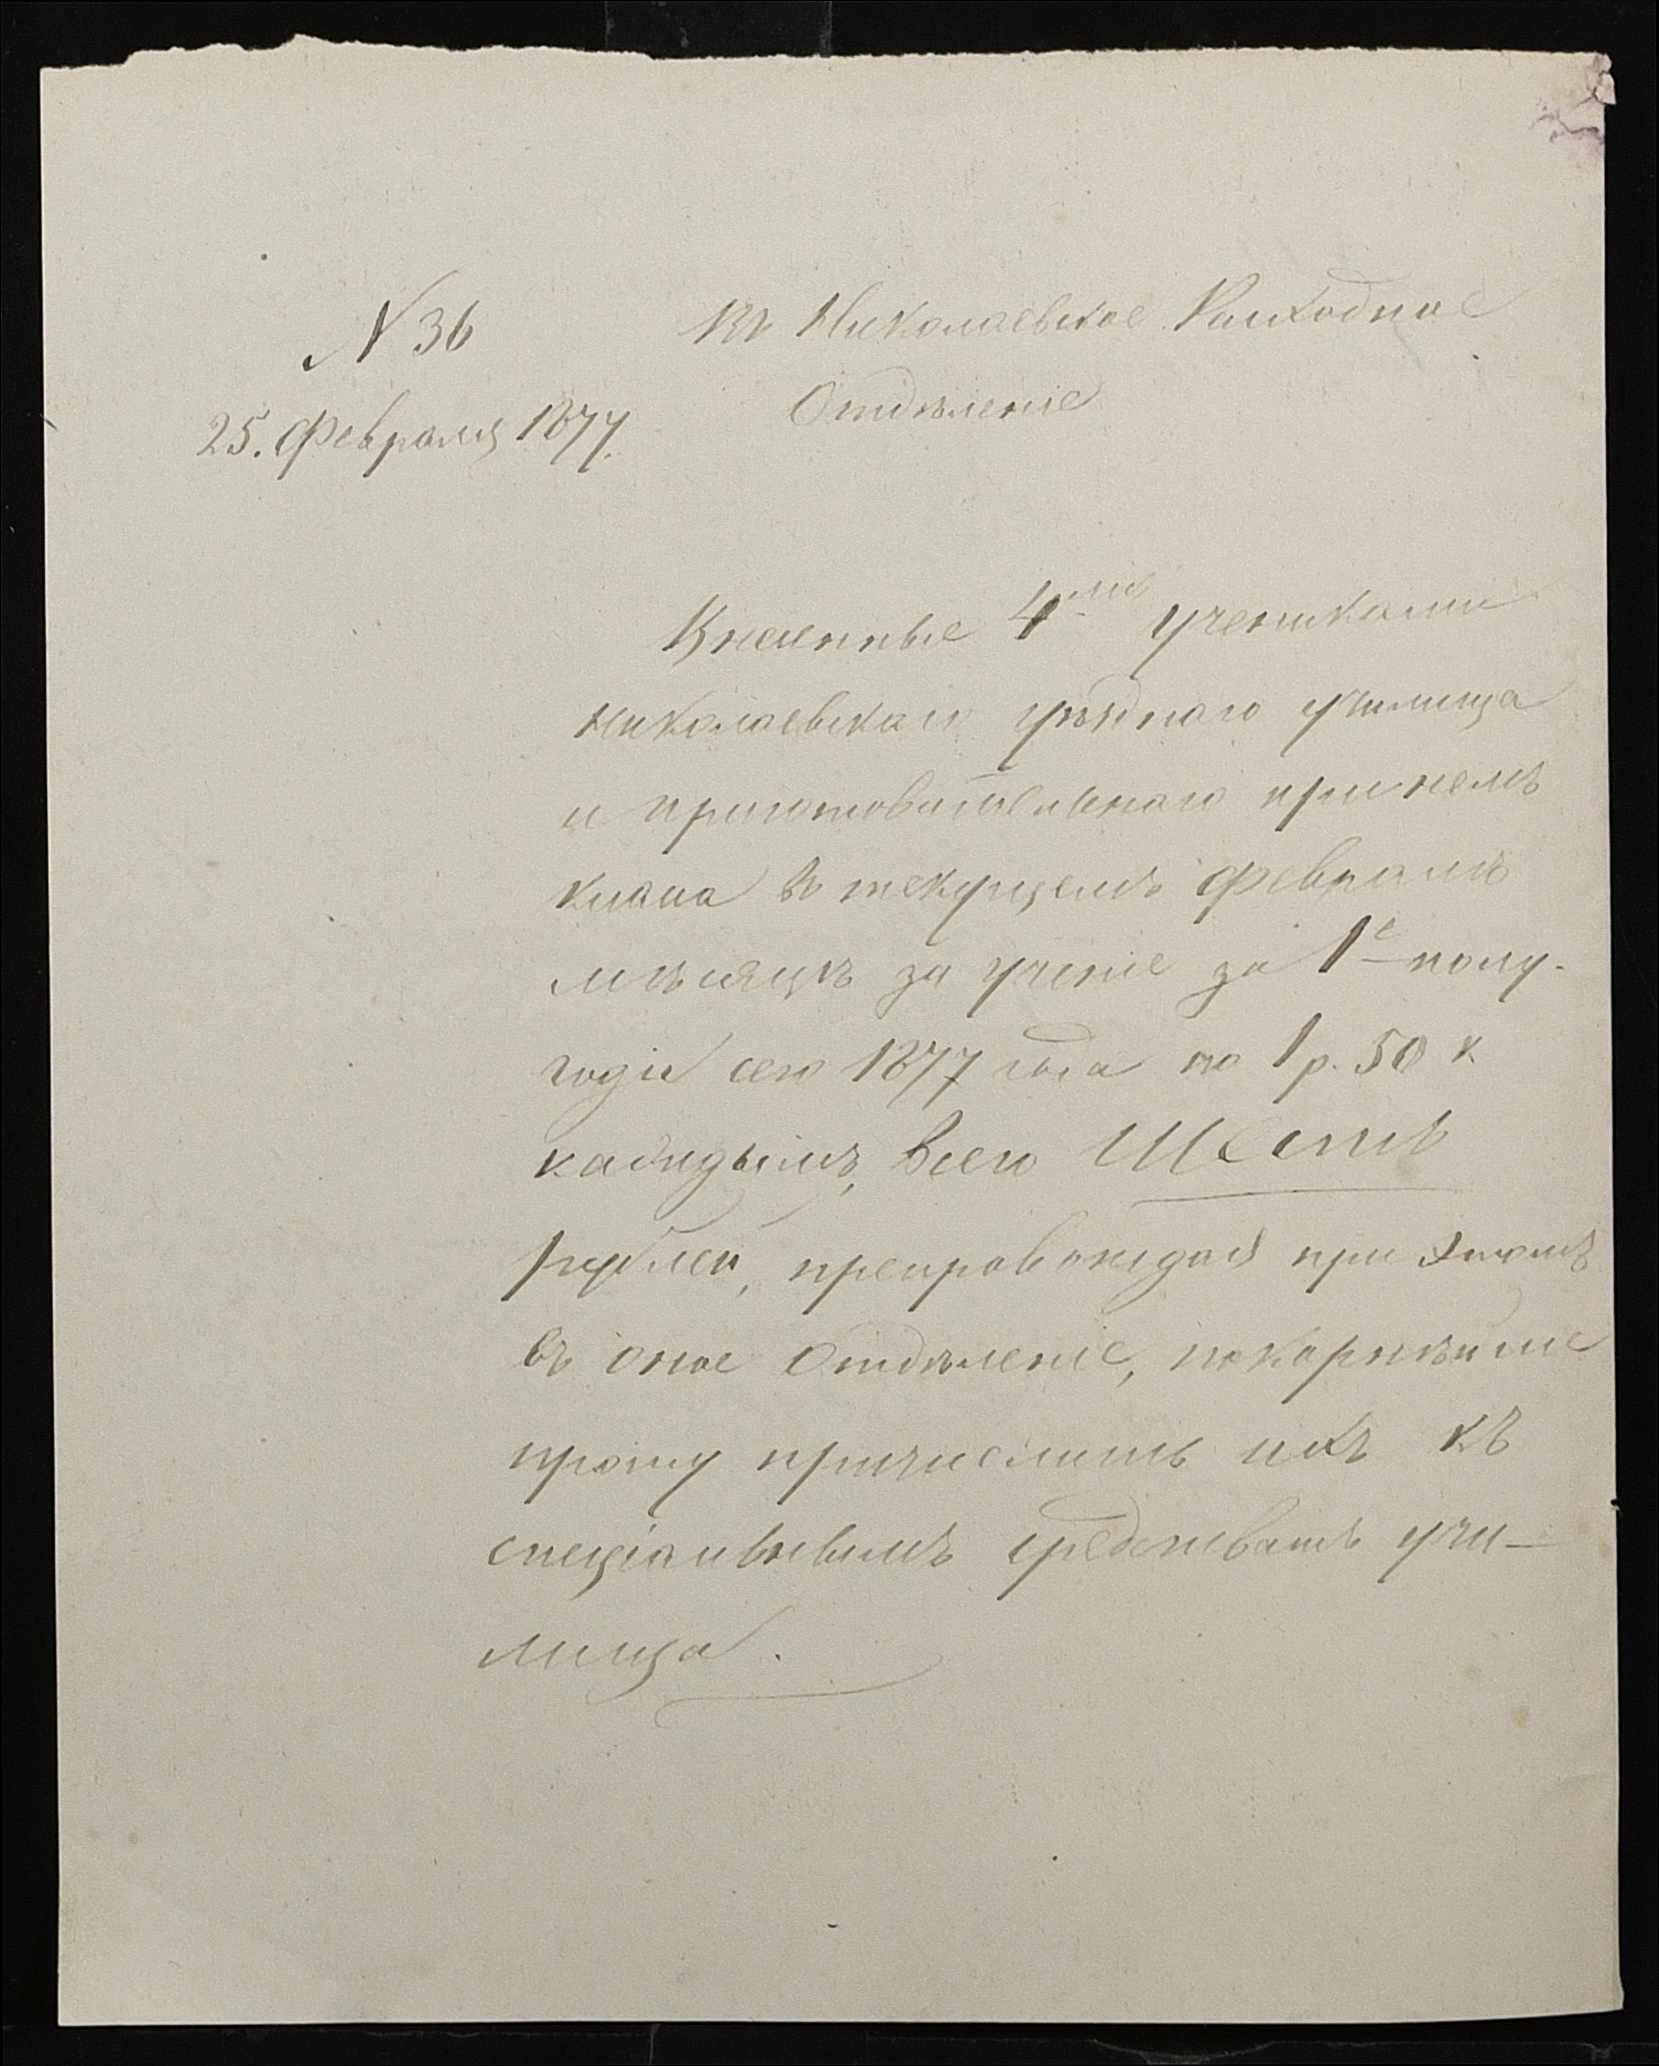 № 36
25. Февраля 1877.
Въ Николаевское Расходное
Отдѣленіе
Внесенные 4мя учениками
Николаевскаго уѣзднаго училища
и приготовительнаго при немъ
класса въ текущемъ Февралѣ
мѣсяцѣ за ученіе за 1е полу-
годіе сего 1877 года по 1 р. 50 к
каждымъ, всего Шесть
рублей, препровождая при этомъ
въ оное Отдѣленіе, покорнѣйше
прошу причислить ихъ къ
спеціальнымъ средствамъ учи-
лища.